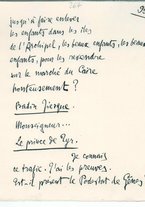 jusqu'à faire enlever
les enfants dans les îles
de l'Archipel, les beaux enfants, les beaux
enfants, pour les revendre
sur le marché du Caire
honteusement ?
Badin Jicque.
Monseigneur...
Le prince de Pyr.
Je connais
ce trafic. J'ai les preuves.
Est-il présent le Podestat de Gênes ?